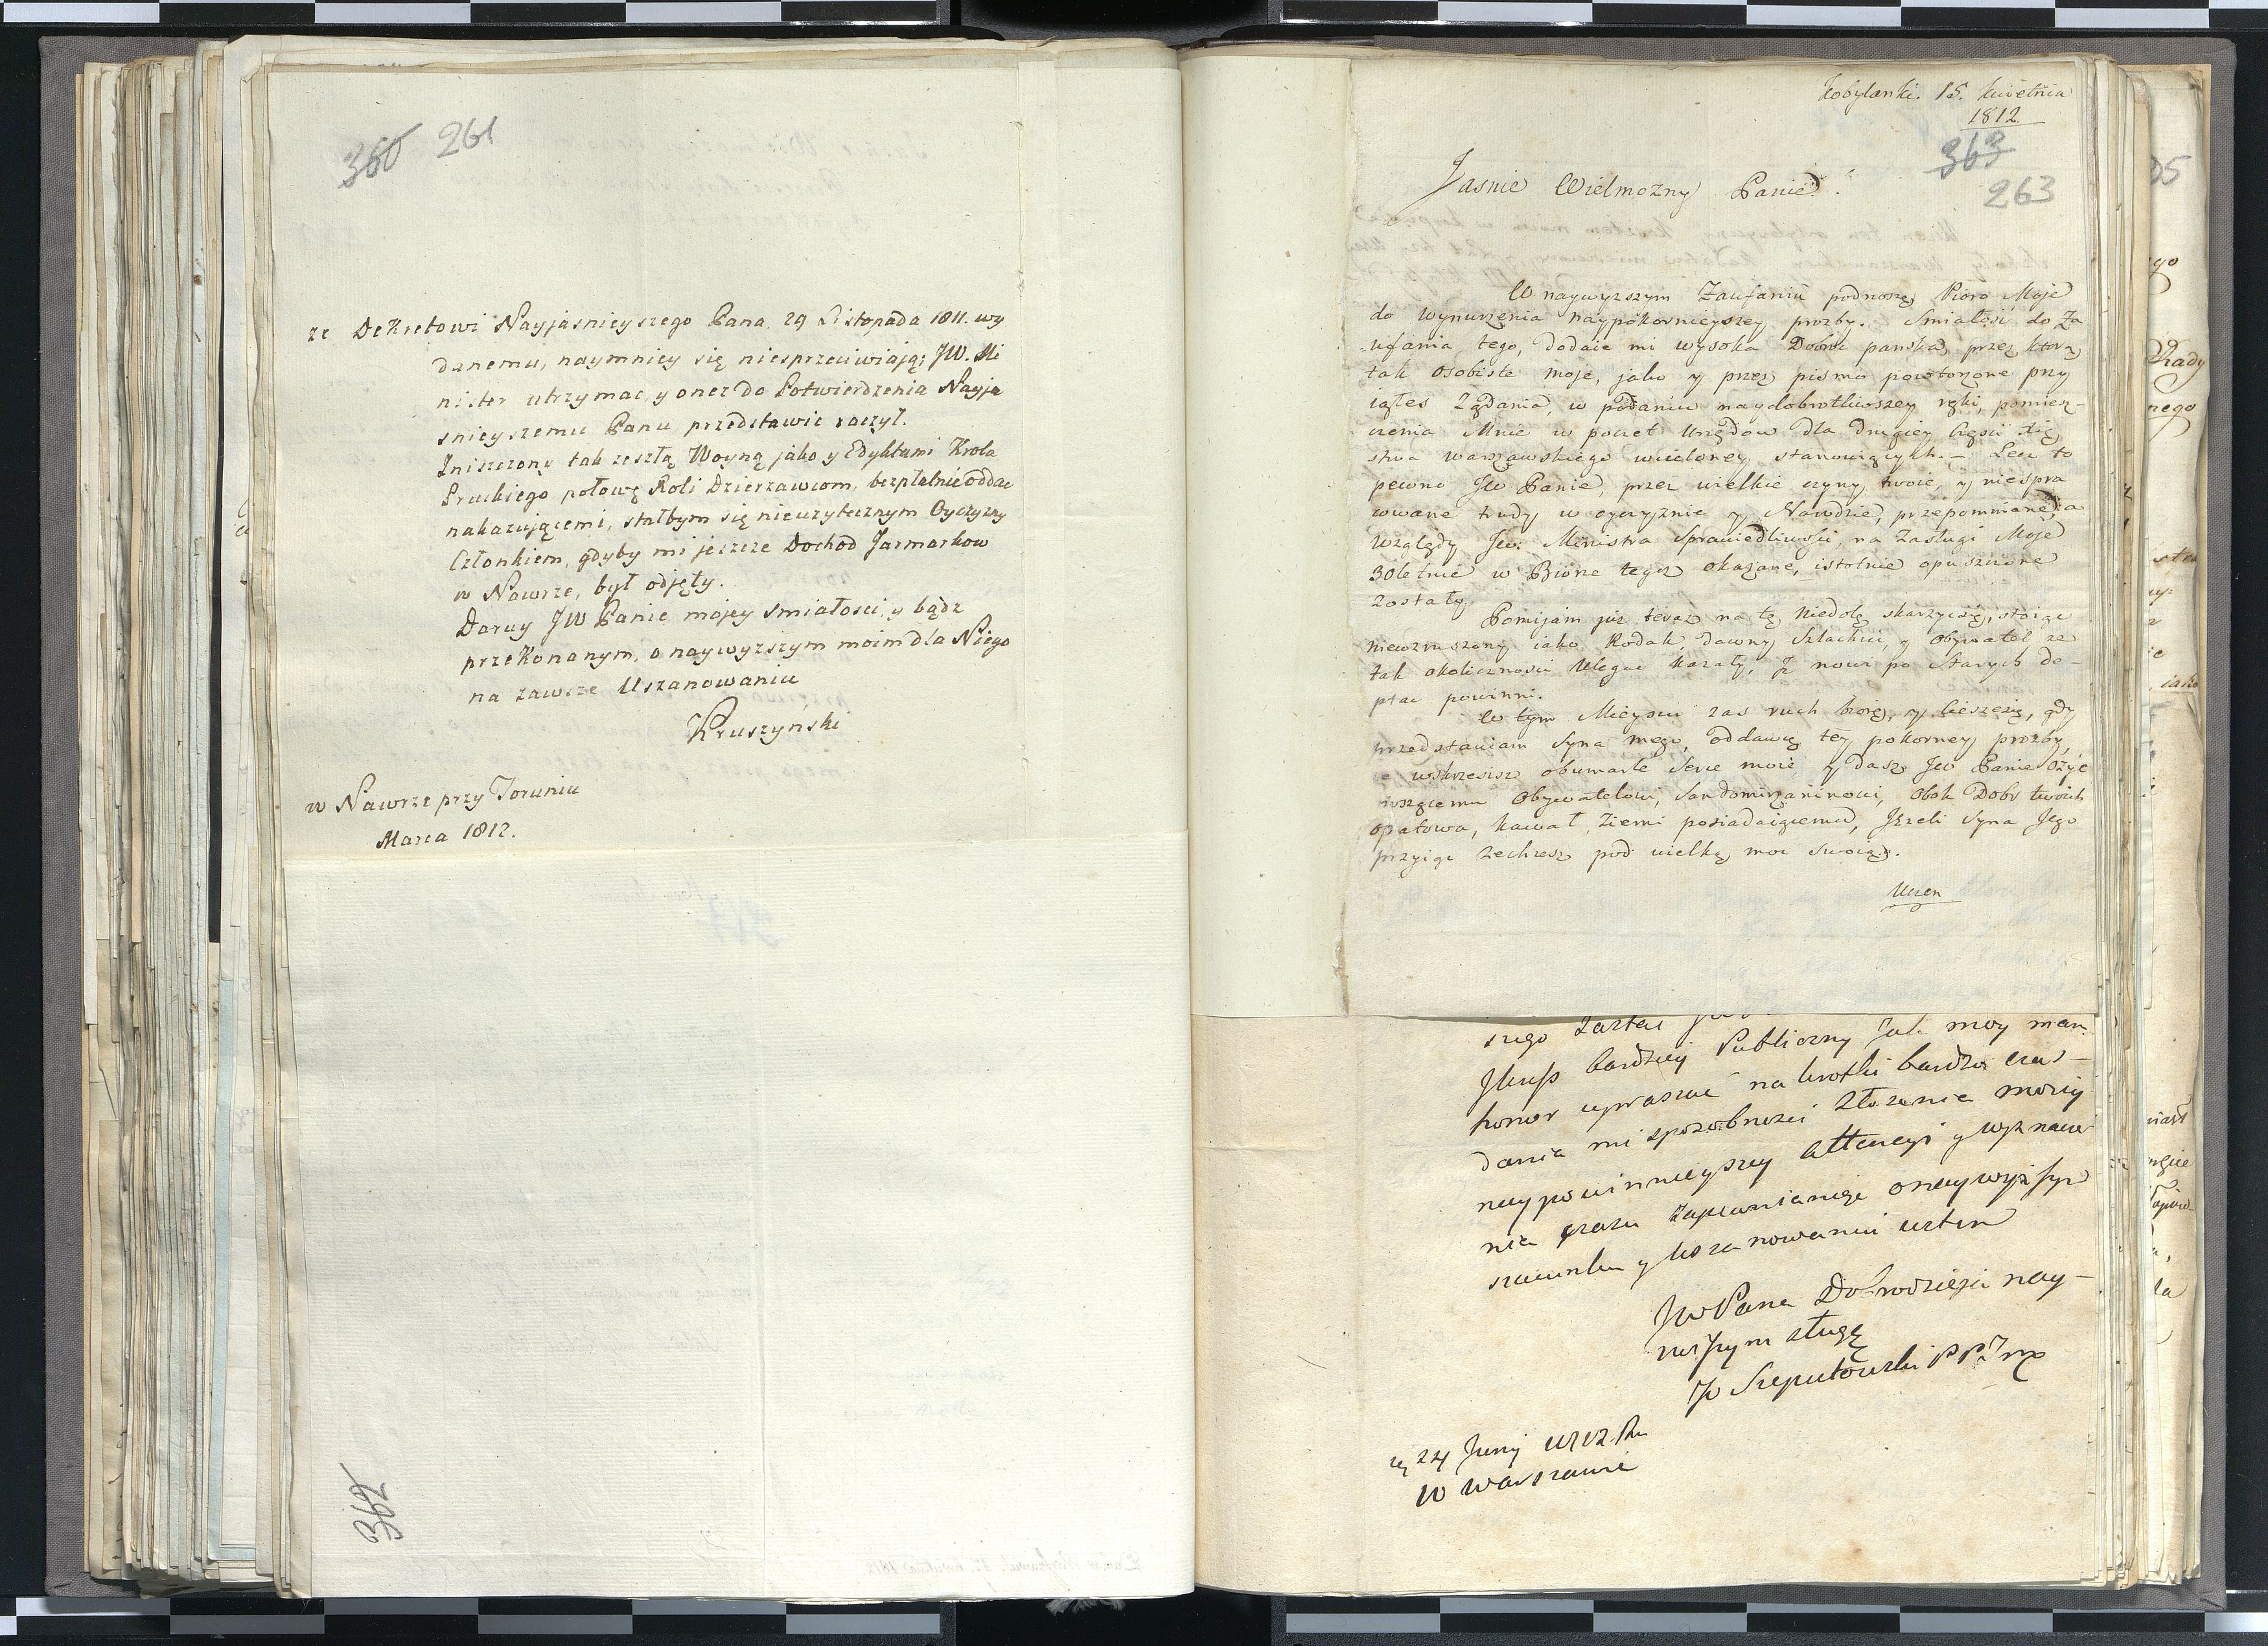 360 261
ze Dekretowi Nayjasnieyszego Pana, 29 Listopada 1811. wy
danemu, naymniey się niesprzeciwiają; JW. Mi
nister utrzymac, y onez do Potwierdzenia Nayja
snieyszemu Panu przedstawic raczył.
Zniszczony tak zeszłą Woyną jako y Edyktami Krola
Pruskiego połowę Roli Dzierzawcom, bezpłatnie oddac
nakazującemi, stałbym się nieuzytecznym Oyczyzny
Członkiem, gdyby mi jeszcze Dochod Jarmarkow
w Nawrze, był odjęty.
Daruy JW Panie mojey smiałosci y bądz
przekonanym, o naywyzszym moim dla Niego
na zawsze Uszanowaniu
Kruszyński
w Nawrze przy Toruniu
Marca 1812.
362
Kobylanki. 15. kwietnia
1812
363
263
Jasnie Wielmozny Panie!
W naywyzszym Zaufaniu podnoszę Pioro Moje
do wynurzenia naypokornieyszey prozby. Smiałość do Za
ufania tego, dodaie mi wysoka Dobroc panska, przez ktorą
tak osobiste moje, jako y przez pismo powtorzone przy
iąłes Ządania, w podaniu naydobrotliwszey ręki, pomiesz-
czenia Mnie w poczet Urzędow dla drugiey Częsci Xię
stwa warszawskiego wcieloney stanowiących. – Lecz to
pewno JW Panie, przez wielkie czyny twoie, y niespra
cowane trudy w oyczyznie y Narodzie, przepomniane, a
względy JW. Ministra Sprawiedliwosci, na Zasługi Moje
30letnie w Biorze tegoz okazane, istotnie opuszczone
zostały.
Pomijam juz teraz na tę niedolę skarzyć się, stoiąc
niewzruszony iako Rodak, dawny Szlachcic, y Obywatel ze
tak okolicznosci Ulegac kazały, Jz nowi po Starych de-
ptac powinni.
W tym Mieyscu zas ruch biorę, y cieszę się, gdy
przedstawiam Syna mego, oddawcę tey pokorney prozby,
e wskrzesisz obumarłe Serce moie, y dasz JW Panie Ożyc
Obywatelowi, Sandomirzaninowi, obok Dobr twoich
Opatowa, kawał Ziemi posiadaiącemu, Jezeli Syna Jego
przyiąc zechcesz pod wielką moc Swoią.
Uczen
szego Zastac
bardziey Publiczny Jak moy mam
honor upraszać na krotki bardzo czas –
dania mi sposobnosci złozenia moiey
naypowinnieyszey attencyi y wyznaw
nia zarazu zapewnianiąc o naywyższym
szacunku y Uszanowaniu
JW Pana Dobrodzieja nay –
nizszym sługą
24 Junij 1812 Ru
w warszawie